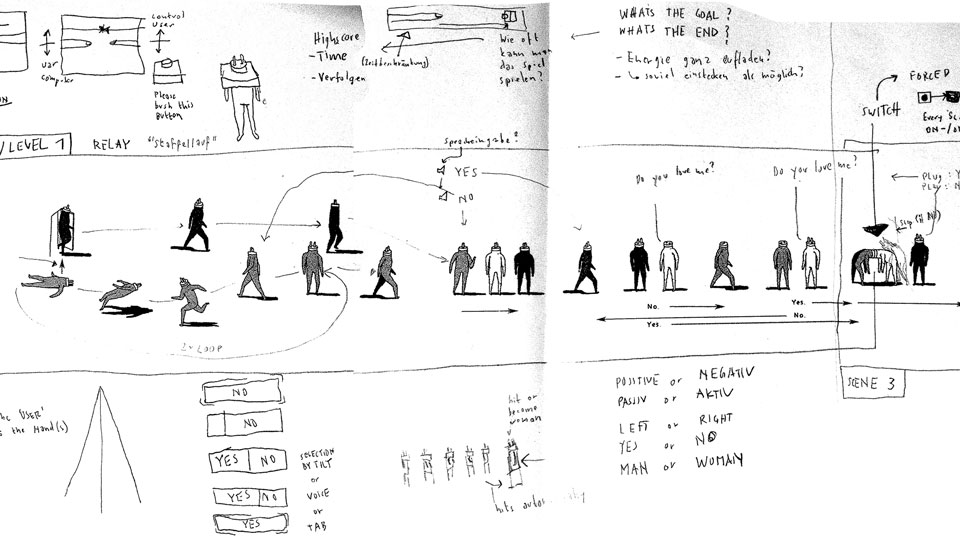 control
user
user
compiler
Please
push this
Button
Highscore
- Time (Zeitbeschränkung)
- Verfolgen
Wie oft
kann man
das Spiel
spielen?
WHATS THE GOAL?
WHATS THE END?
- Energie ganz aufladen?
- soviel einstecken als möglich?
FORCED
SWITCH
ON-/O
LEVEL 1
RELAY "Staffellauf"
Spracheingabe?
YES
NO
Do you love me?
Do you love me?
PLUG: Y
PLUG: N
No.
Yes.
No.
Yes.
LOOP
SCENE 3
the USER'
s the Hand(s)
NO
NO
YES NO
YES NO
YES
SELECTION
BY TILT
or
VOICE
or
TAB
hit or
become
woman
hits
POSITIVE or NEGATIV
PASSIV or AKTIV
LEFT or RIGHT
YES or NO
MAN or WOMAN